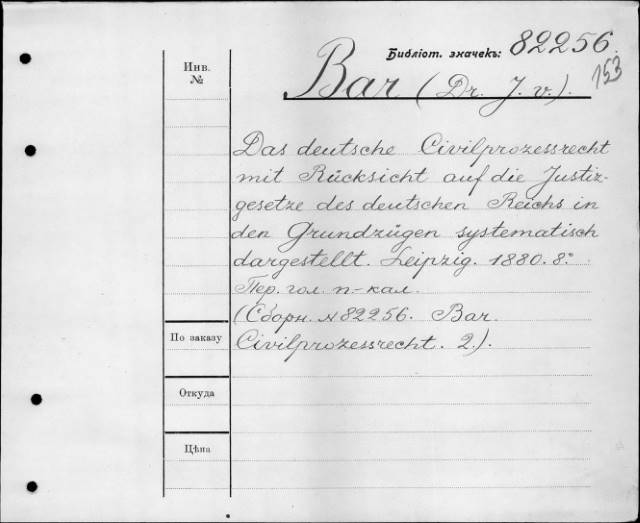 Библіот. значекъ: 82256.
153
Инв.
№
Bar (Dr. J. v.).
Das deutsche Civilprozessrecht
mit Rücksicht auf die Justiz-
gesetze des deutschen Reichs in
den Grundzügen systematisch
dargestellt. Leipzig. 1880. 8º
Пер. гол. п-кал.
(Сборн. № 82256. Bar.
По заказу
Civilprozessrecht. 2.).
Откуда
Цѣна